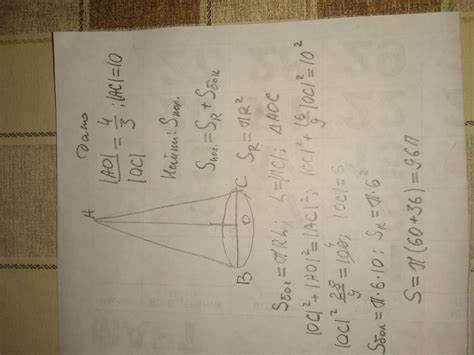 Дано
|AO|/|OC| = 4/3 ; |AC|=10
Найти: Sпов.
Sпов. = SR + Sбок
SR = πR²
A
B
O
C
Sбок = πRL; L=|AC|; ΔAOC
|OC|²+|AO|²=|AC|²; |OC|²+16/9|OC|²=10²
|OC|² =100; |OC|=6
Sбок = π·6·10; SR = π·6²
S=π(60+36)=96π